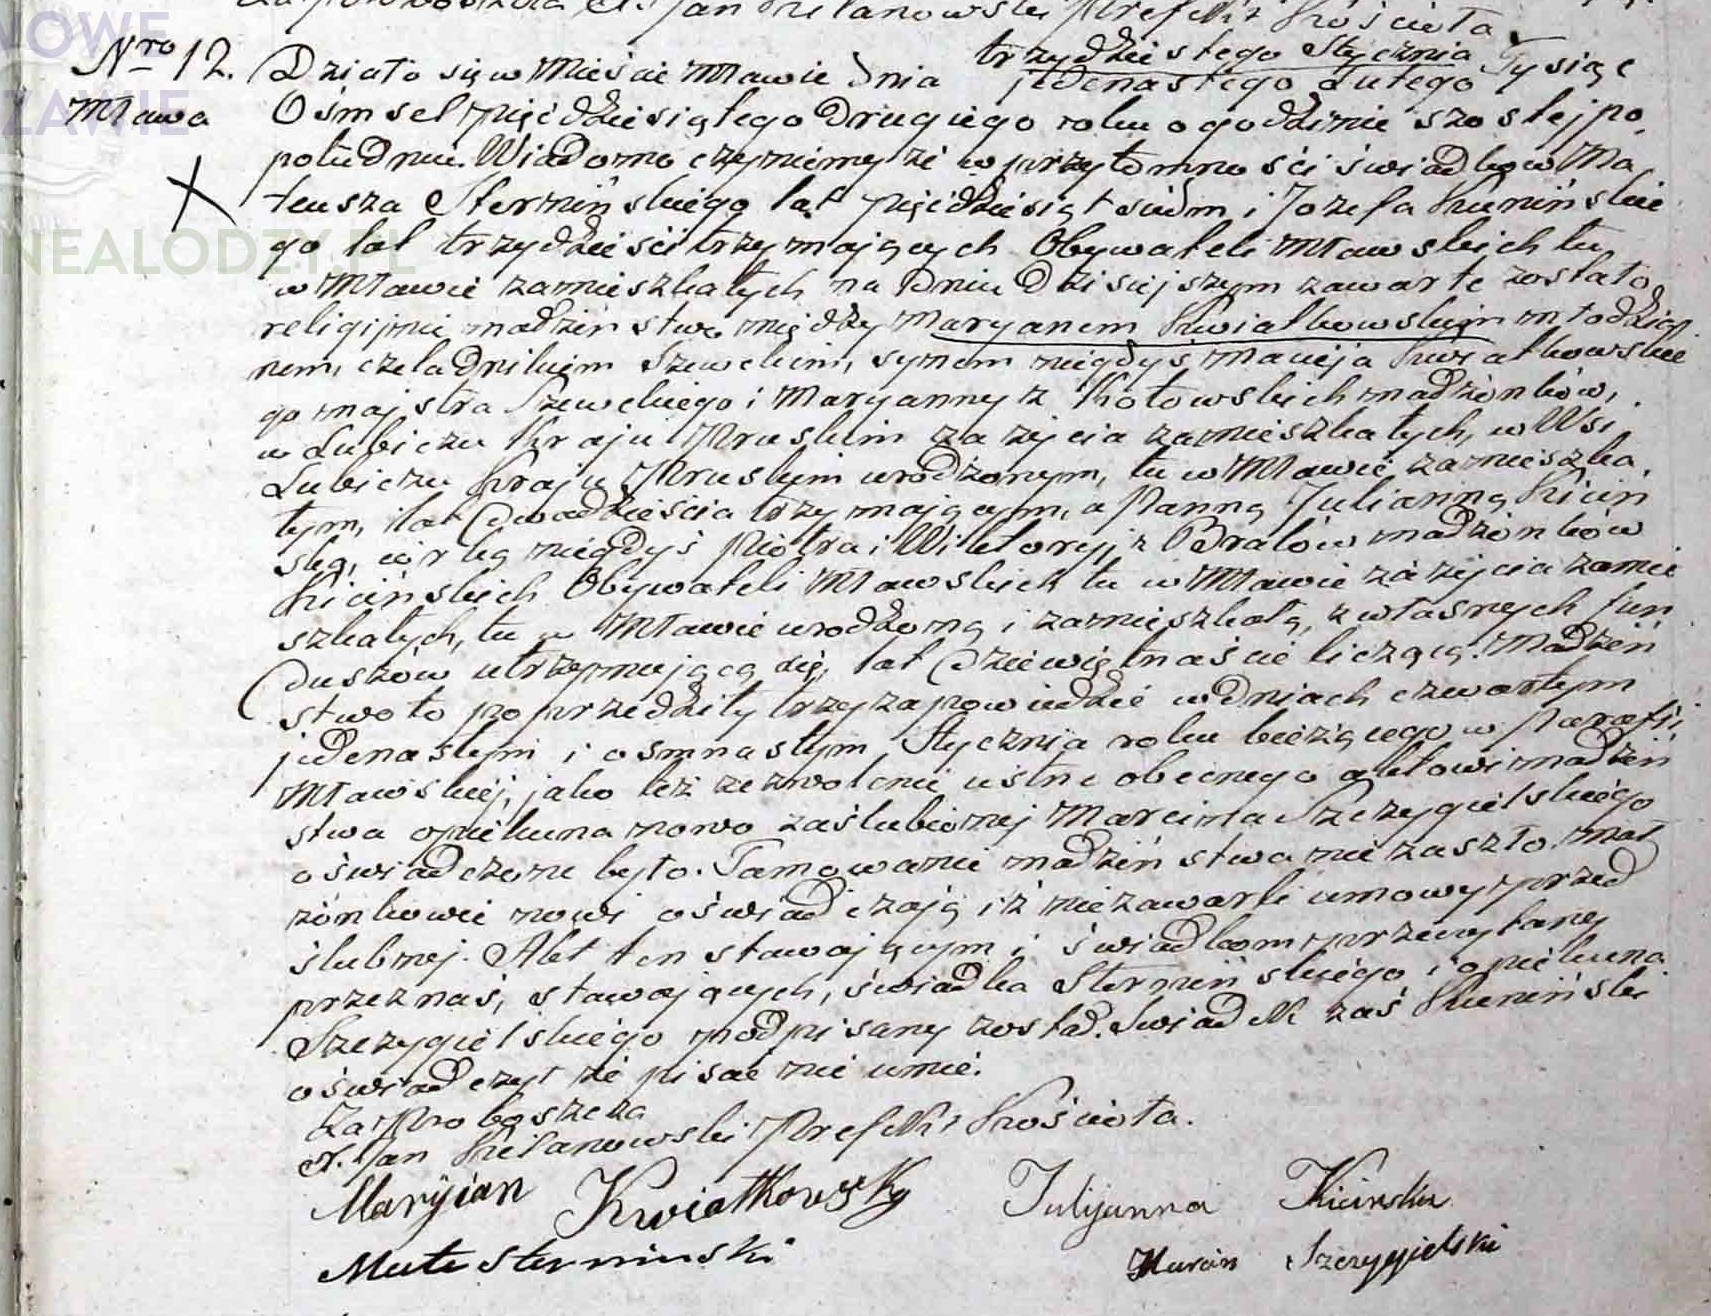 Jan Kielanowski Prefekt Kościoła
Nro 12. Działo się w Mieście Mławie dnia trzydziestego Stycznia jedenastego Lutego Tysiąc
Mława Ośmset pięćdziesiątego drugiego roku o godzinie szóstej po
południu. Wiadomo czyniemy że w przytomności świadków Ma
teusza Stermińskiego lat pięćdziesiąt siedm i Józefa Kumińskie
go lat trzydzieści trzy mających Obywateli Mławskich tu
w Mławie zamieszkałych na dniu dzisiejszym zawarte zostało
religijnie małżeństwo między Maryanem Kwiatkowskim młodzia
nem, czeladnikiem Szewckim, synem niegdyś Macieja Kwiatkowskie
go majstra Szewckiego i Maryanny z Kotowskich małżonków,
w Lubiczu Kraju Pruskim za życia zamieszkałych, w Wsi
Lubiczu Kraju Pruskim urodzonym, tu w Mławie zamieszka
łym, lat dwadzieścia trzy mającym, a Panną Julianną Kiciń
ską, córką niegdyś Piotra i Wiktoryj z Bralów małżonków
Kicińskich Obywateli Mławskich tu w Mławie za życia zamie
szkałych, tu w Mławie urodzoną i zamieszkałą, z własnych fun
duszów utrzymującą się, lat dziewiętnaście liczącą. Małżeń
stwo to poprzedziły trzy zapowiedzie w dniach czwartym
jedenastym i ośmnastym Stycznia roku bieżącego w Parafii
Mławskiej, jako też zezwolenie ustne obecnego aktowi małżeń
stwa opiekuna nowo zaślubionej Marcina Szczygielskiego
oświadczone było. Tamowanie małżeństwa nie zaszło. Mał
żonkowie nowi oświadczają iż nie zawarli umowy przed
ślubnej. Akt ten stawającym i świadkom przeczytany
przez nas, stawających, świadka Stermińskiego i opiekuna
Szczygielskiego podpisany został. Świadek zaś Kumiński
oświadczył że pisać nie umie.
Za Proboszcza
X. Jan Kielanowski Prefekt Kościoła.
Maryian Kwiatkowsky Julijanna Kicinska
Mate Sterminski Marcin Szczygielski
NEALODZY.PL